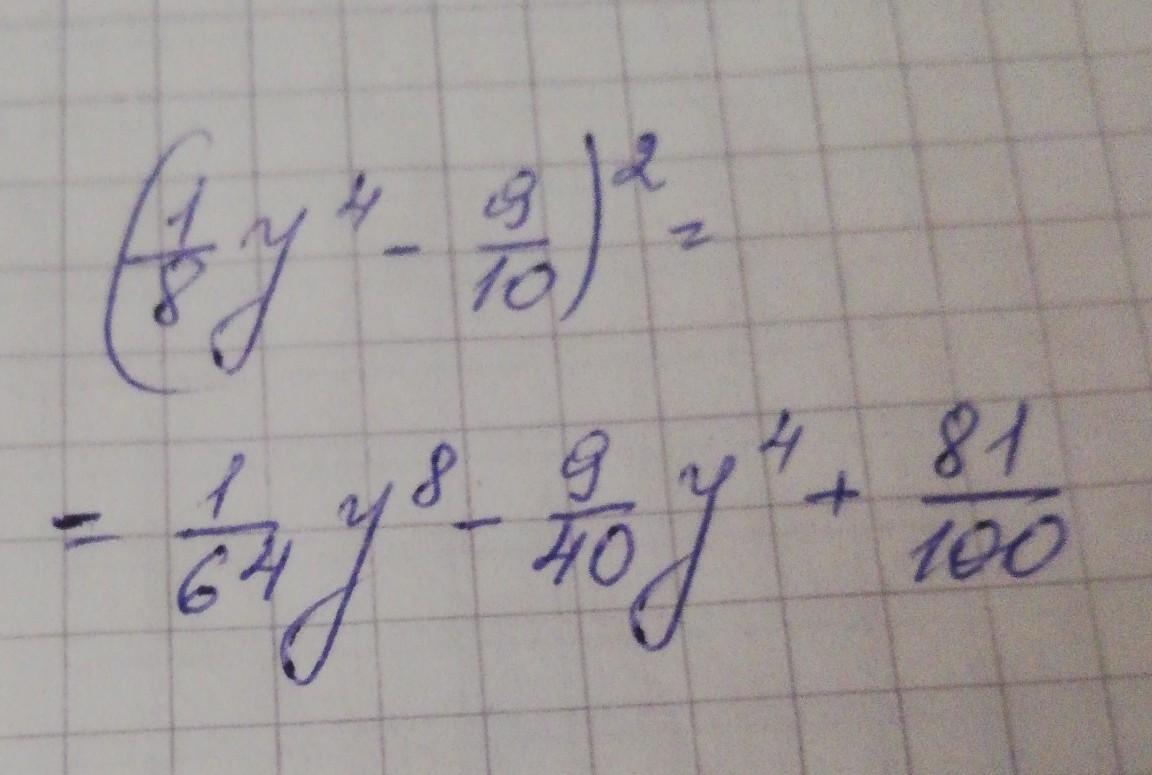 (1/8 y^4 - 9/10)^2 =
= 1/64 y^8 - 9/40 y^4 + 81/100